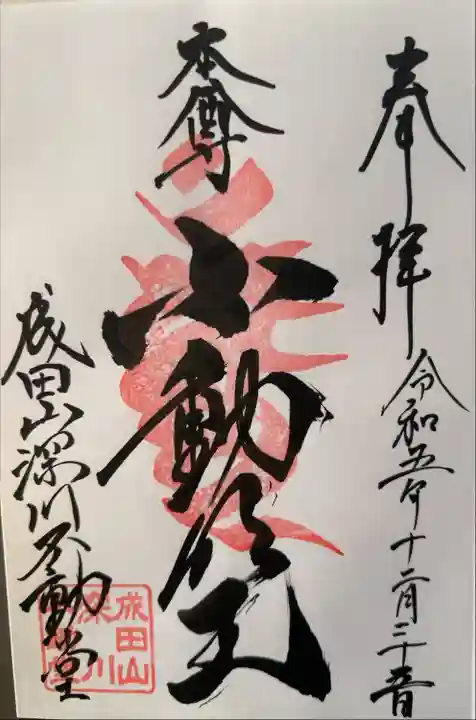 奉拝 令和五年十二月
本尊
不動明王
成田山深川不動堂
成田山
深川